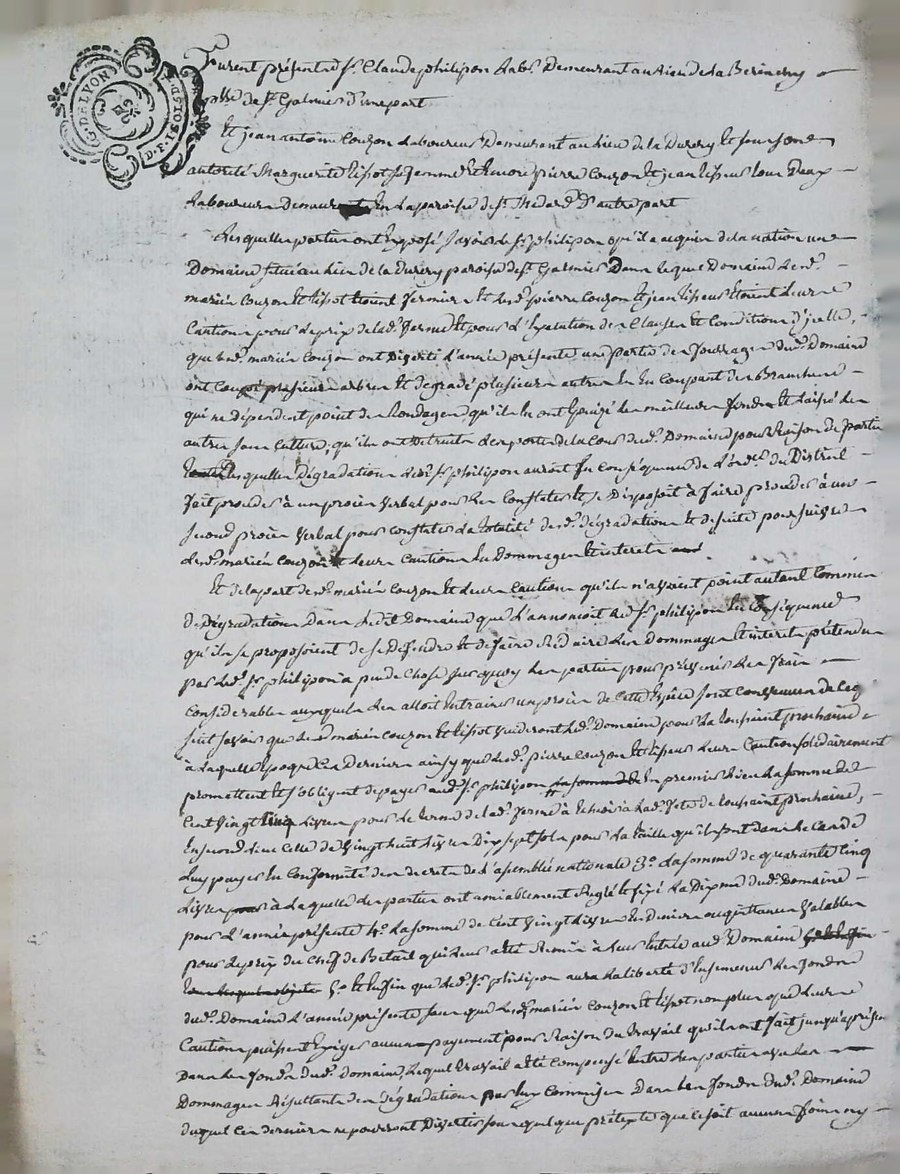 G. DE LYON
D. F. 1 SOL 8 D.
Furent présents Sr. Claude philipon Labr. Demeurant au Lieu de la
psse de St. Galmier d'une part
Et jean antoine Couzon Laboureur Demeurant au Lieu de la Durery Et sous son
autorité Marguerite tissot sa femme Et Encore pierre Couzon Et jean tisseur tous Deux
Laboureurs Demeurants En La paroisse de St. Medard D'autre part
Lesquelles parties ont Exposé savoir Le Sr. philipon qu'il a acquis de la nation un
Domaine situé au Lieu de la Durery paroisse de St. Galmier Dans Lequel Domaine Lesd.
mariés Couzon Et tissot étoient fermiers Et Lesd. pierre Couzon Et jean tisseur étoient Leurs
Cautions pour Le prix de lad. ferme Et pour L'Exécution des Clauses Et Conditions d'icelle,
que Lesd. mariés Couzon ont Diverti L'année présente une partie des fourrages dud. Domaine
ont Coupé plusieurs arbres Et dégradé plusieurs autres En En Coupant des Branches
qui ne dépendent point des qu'ils ont les meilleurs fonds Et Laissé Les
autres sans Culture, qu'ils ont Détruit Les portes de la Cour dud. Domaine pour Raison de partie
Desquelles Dégradations Led. Sr. philipon auroit En Conséquence de L'ordce. du District
fait procéder à un procès Verbal pour Les Constater Et se Disposoit à faire procéder à un
second procès Verbal pour constater La totalité desd. dégradations Et de suite poursuivre
Lesd. mariés Couzon Et Leurs Cautions En Dommages Et interets
Et de la part desd. mariés Couzon Et Leurs Cautions qu'ils n'avoient point autant Commis
de Dégradations Dans Ledit Domaine que L'annonçoit Led. Sr. philipon En Conséquence
qu'ils se proposoient de se deffendre Et de faire Réduire Les Dommages Et interets prétendus
par Led. Sr. philipon à peu de Chose sur quoy Les parties pour prévenir Les frais
Considerables auxquels Les alloit Entrainer un procès de Cette Espèce sont Convenues de Ce qui
suit savoir que Lesd. mariés Couzon Et tissot Vuideront Led. Domaine pour La toussaint prochaine
à Laquelle Epoque Ces Derniers ainsy que Lesd. pierre Couzon Et tisseur Leurs Cautions solidairement
promettent Et s'obligent de payer aud. Sr. philipon En premier Lieu La somme de
Cent Vingt Cinq Livres pour Le terme de lad. ferme à Echoir à Lad. fete de toussaint prochaine,
En second Lieu Celle de Vingt huit Livres Dix sept sols pour La taille qu'ils sont dans Le Cas de
Luy payer En Conformité des decrets de L'assemblée nationale 3o. La somme de quarante Cinq
Livres à Laquelle Les parties ont amiablement Reglé Et fixé La Dixme dud. Domaine
pour L'année présente 4o. La somme de Cent Vingt Livres En Deniers ou quittances Valables
pour Le prix du Cheff de Betail qui Leur a été Remis à Leur Entrée aud. Domaine
5o. Et Enfin que Led. Sr. philipon aura La liberté d'Ensemencer Les fonds
dud. Domaine L'année présente sans que Lesd. mariés Couzon Et tissot non plus que Leurs
Cautions puissent Exiger aucun payement pour Raison du travail qu'ils ont fait jusqu'à présent
Dans Les fonds dud. Domaine Lequel travail a été Compensé Entre Les parties avec Les
Dommages Résultants des dégradations par Eux Commises Dans Les fonds dud. Domaine
duquel Ces derniers ne pourront Divertir sous quelque prétexte que Ce soit aucuns foins ny